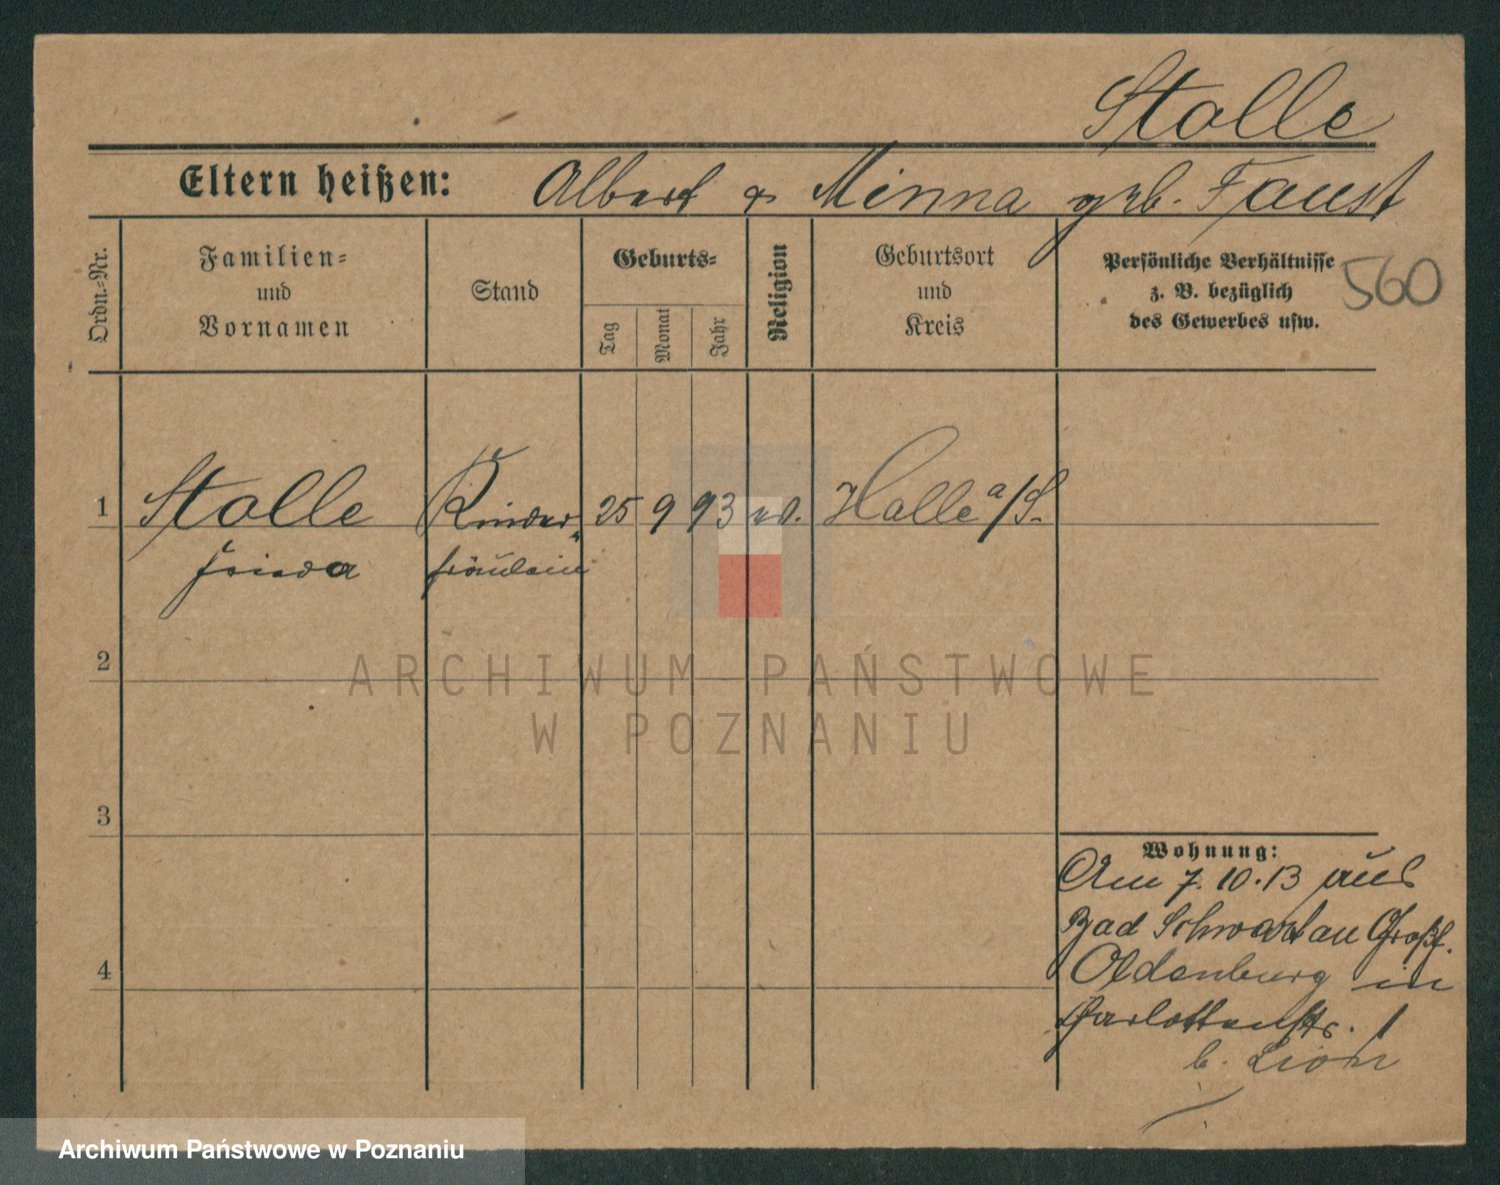 Stolle
Eltern heißen: Albert & Minna geb. Faust
Ordn.=Nr.
Familien=
und
Vornamen
Stand
Geburts=
Tag
Monat
Jahr
Religion
Geburtsort
und
Kreis
Persönliche Verhältnisse
z. B. bezüglich
des Gewerbes usw.
560
1 Stolle Kinder 25 9 93 ev. Halle a/S.
Frieda fräulein
2
ARCHIWUM PAŃSTWOWE
W POZNANIU
3
Wohnung:
Am 7.10.13 aus
Bad Schwartau Großh.
4 Oldenburg in
Charlottenstr. 1
b.
Archiwum Państwowe w Poznaniu